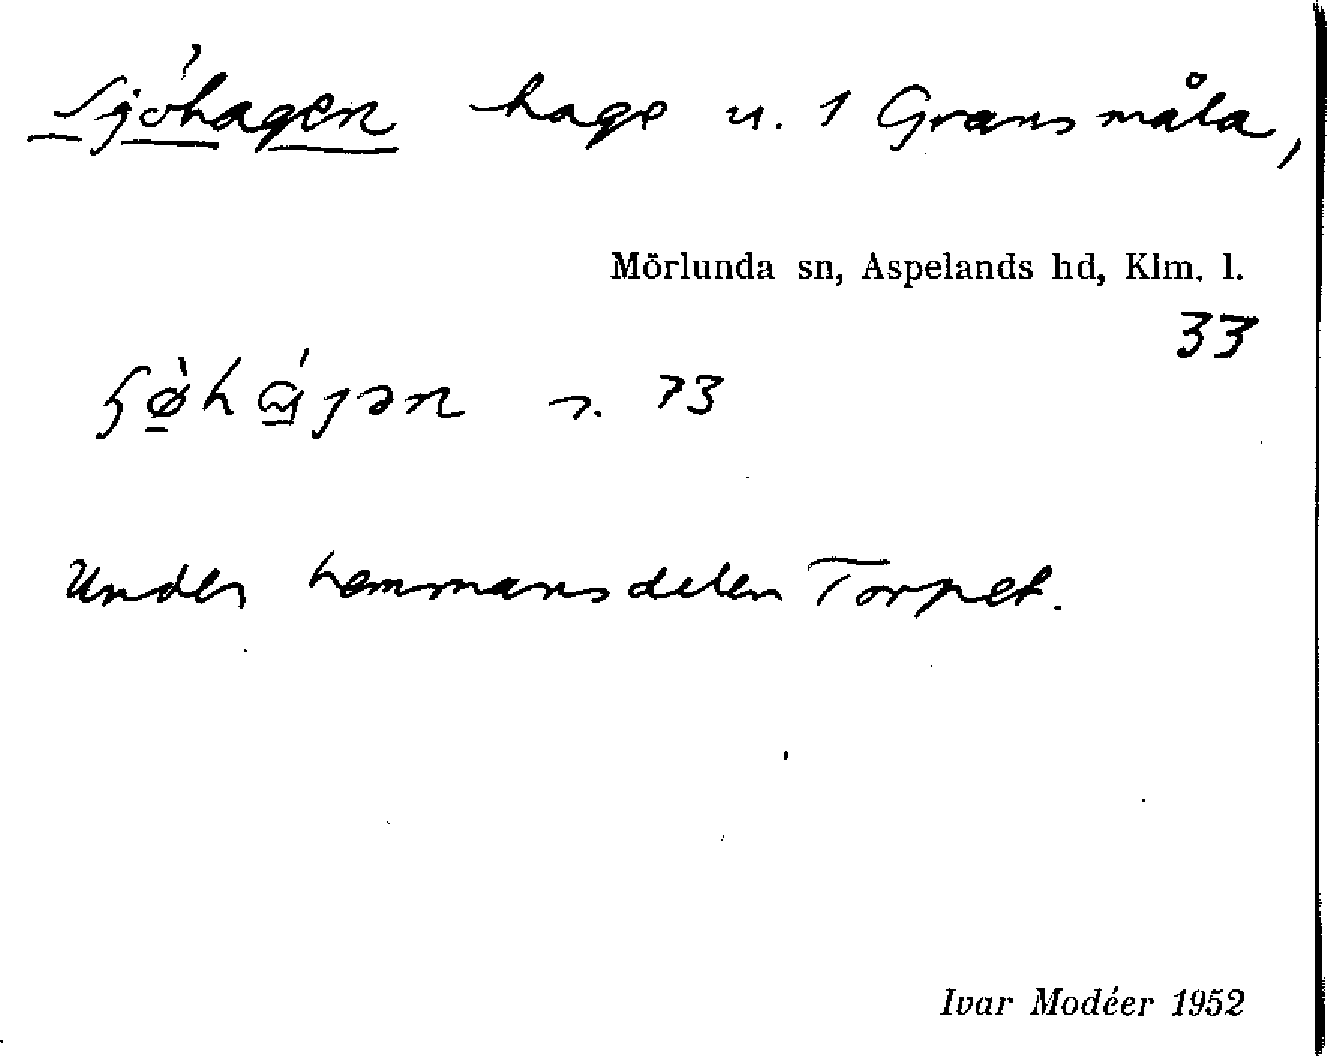 Sjöhagen hage u. 1 Gransmåla,
Mörlunda sn, Aspelands hd, Klm. l.
33
s. 73
Under hemmansdelen Torpet.
Ivar Modéer 1952